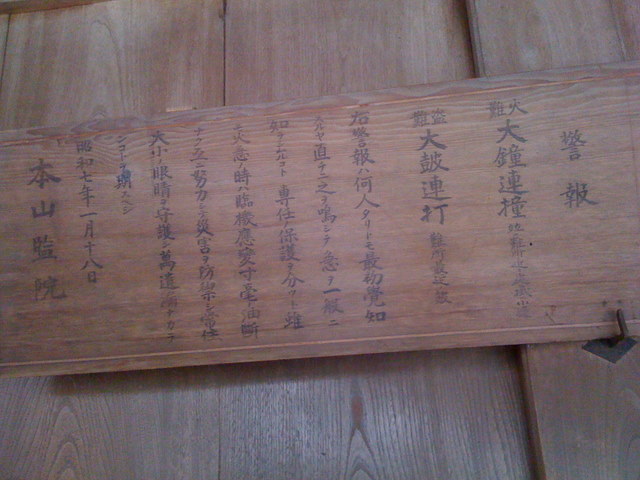 警報
火難 大鐘連撞
盗難 大皷連打
右警報ハ何人タリトモ最初覺知
直チニ之ヲ鳴シテ急ヲ一般ニ
専任ノ保護ヲ分ツト雖
火急ノ時ハ臨機應変寸毫モ油断
ナク互ニ努力シテ災害ヲ防禦シ
大小ノ眼睛ヲ守護シ萬遺漏ナカラ
ンコトヲ期スベシ
昭和七年一月十八日
本山監院